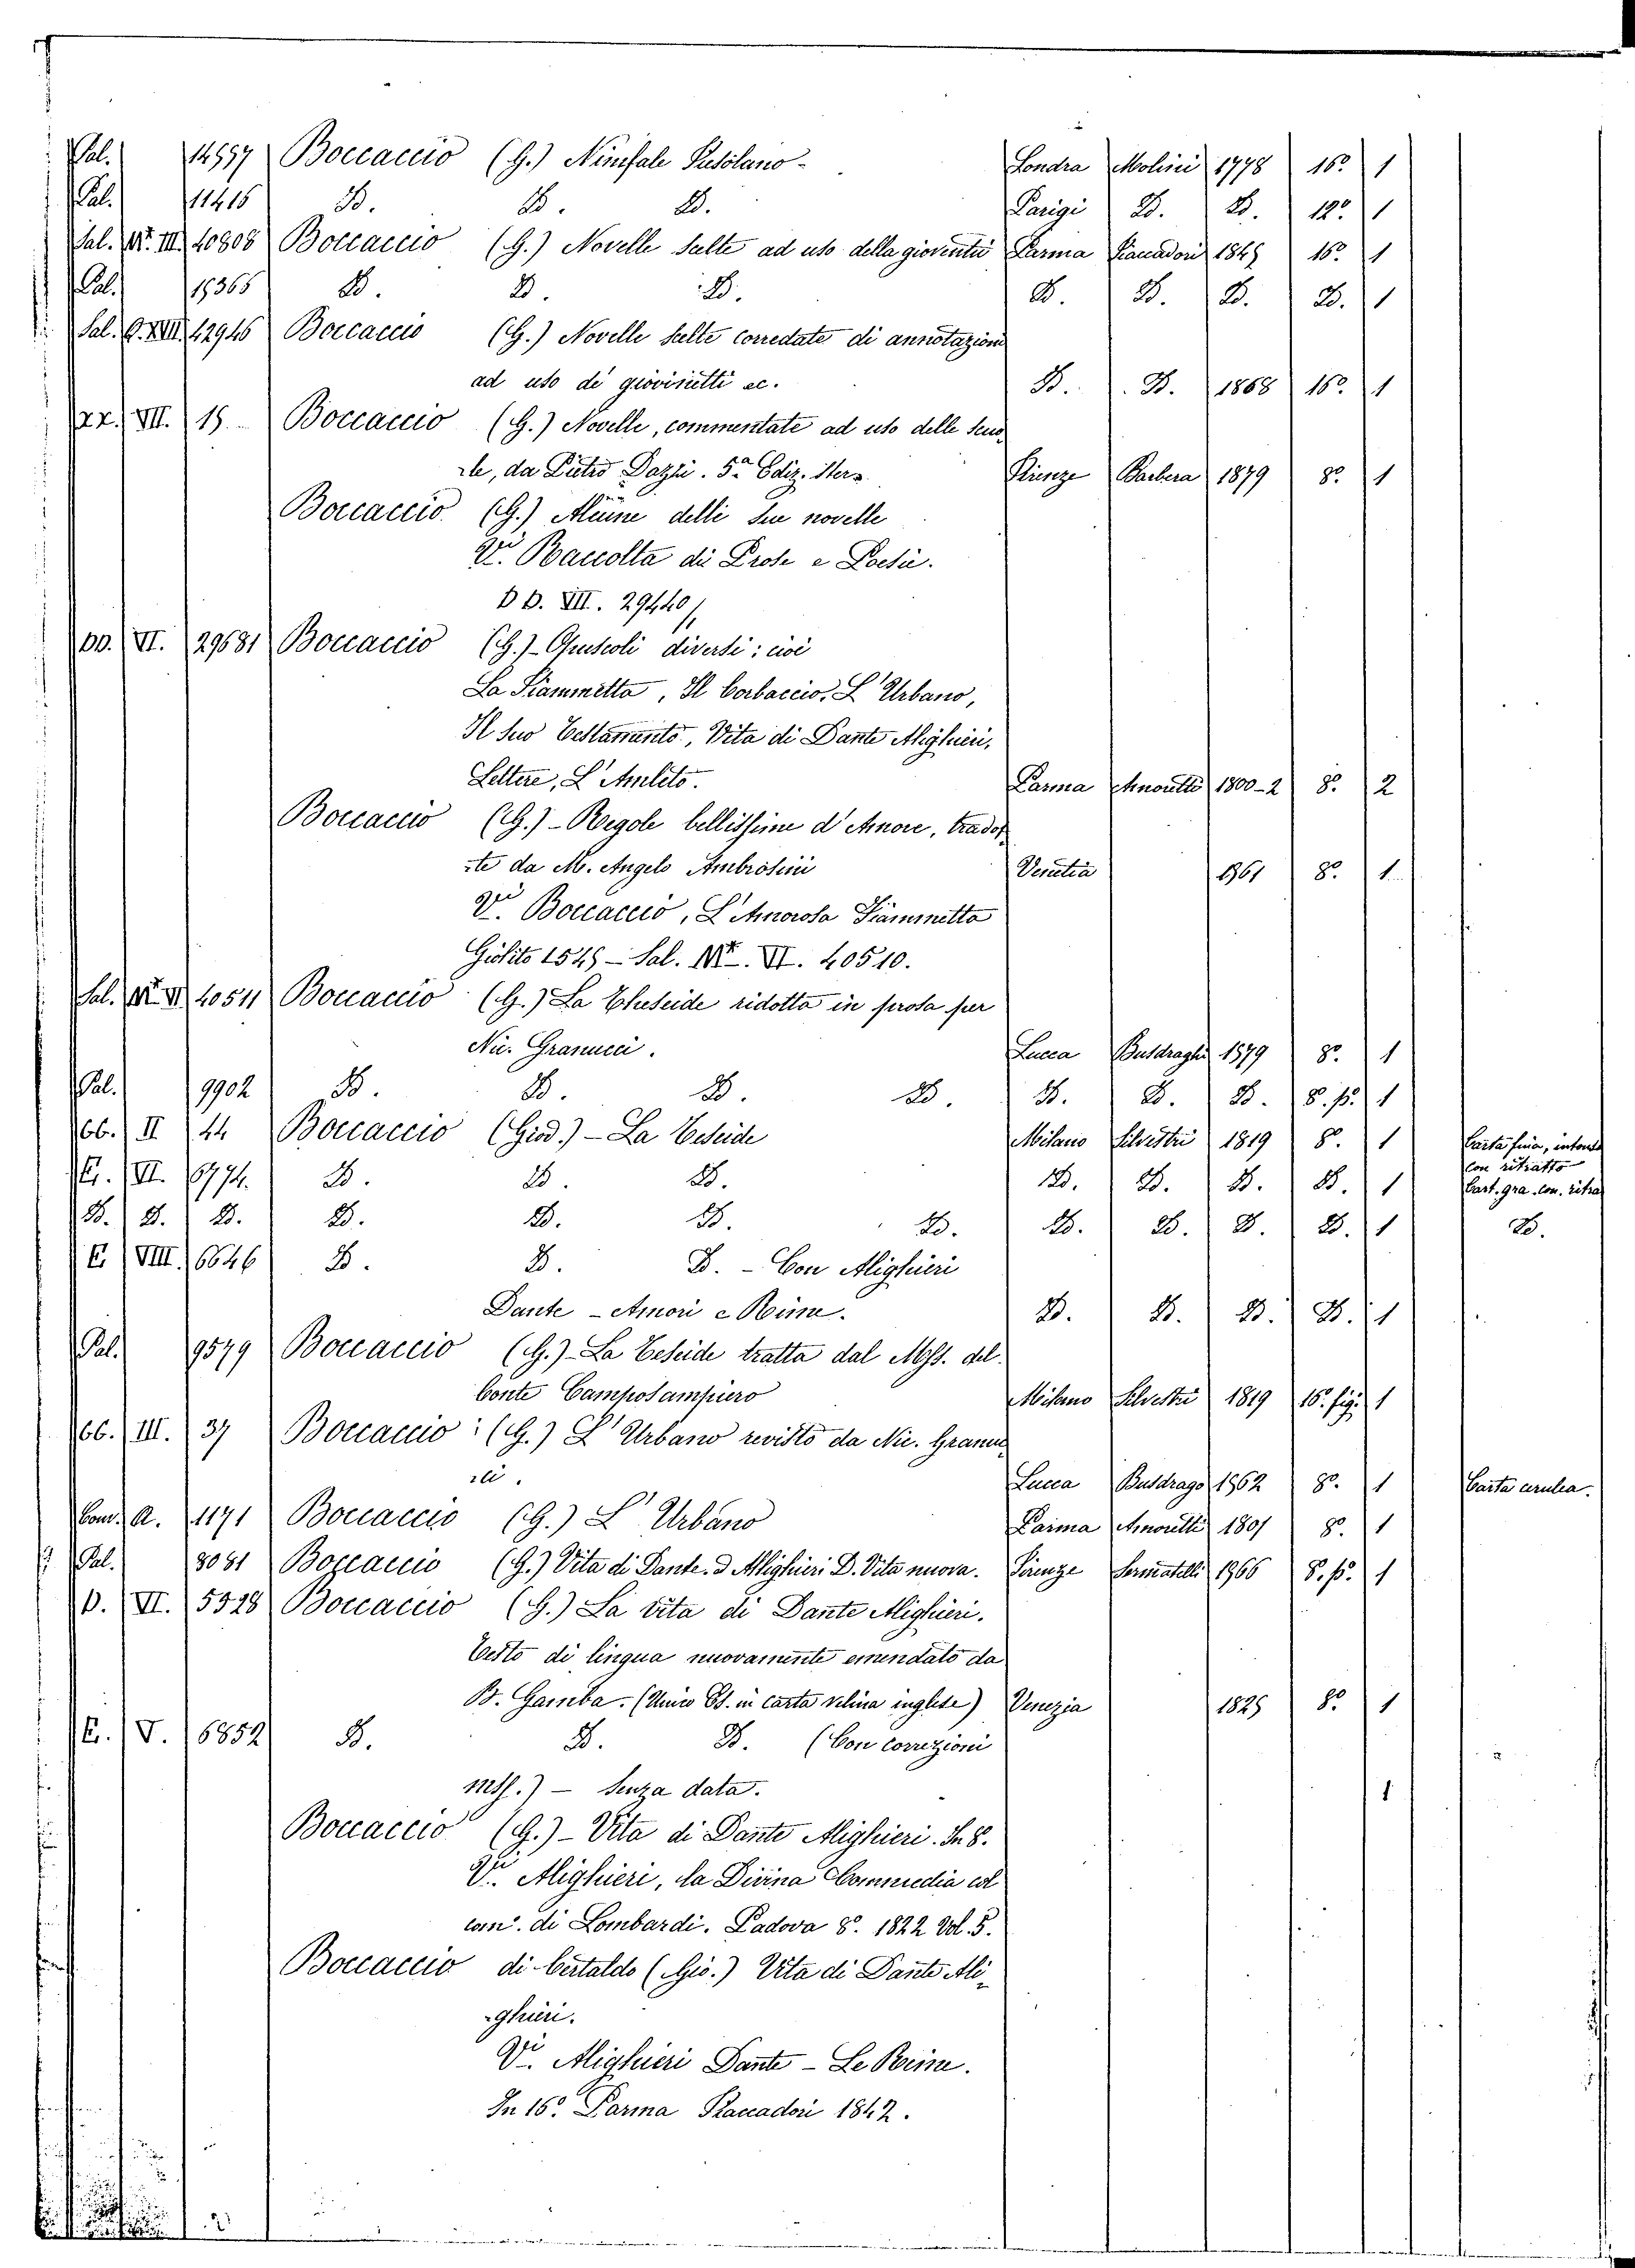 Pal. 14557 Boccaccio (G.) Ninfale Fiesolano - Londra Molini 1778 16.° 1
Pal. 11415 D. D. D. Parigi D. D. 12.° 1
Sal. Nr. III. 40808 Boccaccio (G.) Novelle scelte ad uso della gioventù Parma Fiaccadori 1845 16.° 1
Pal. 15365 D. D. D. D. D. D. D. 1
Sal. Q. XVIII. 42946 Boccaccio (G.) Novelle scelte corredate di annotazioni
ad uso de giovinetti ec. D. D. 1868 16.° 1
XX. VII. 15 Boccaccio (G.) Novelle, commentate ad uso delle scuo-
le, da Pietro Dazzi. 5.a Ediz. Ster. Firenze Barbera 1879 8.° 1
Boccaccio (G.) Alcune delli sue novelle
Vi. Raccolta di Prose e Poesie.
DD. VII. 29440.
DD. VI. 29681 Boccaccio (G.) - Opuscoli diversi: cioè
La Fiammetta, Il Corbaccio, L'Urbano,
Il suo Testamento, Vita di Dante Alighieri,
Lettere, L'Amleto. Parma Amoretti 1800-2 8.° 2
Boccaccio (G.) - Regole bellissime d'Amore, tradot-
te da M. Angelo Ambrosini Venetia 1561 8.° 1
Vi. Boccaccio, L'Amorosa Fiammetta
Giolito 1545 - Sal. Nr. VI. 40510.
Sal. Nr. VI. 40511 Boccaccio (G.) La Theseide ridotta in prosa per
Nic. Granucci. Lucca Busdraghi 1579 8.° 1
Pal. 9902 D. D. D. D. D. D. D. 8.° p.° 1
bb. II 44 Boccaccio (Giov.) - La Teseide Milano Silvestri 1819 8.° 1 Carta fina, intonso con ritratto
E. VII. 6774. D. D. D. D. D. D. D. 1 Cart. gra. con. ritra
D. D. D. D. D. D. D. D. D. D. D. 1 D.
E. VIII. 6646 D. D. D. - Con Alighieri
Dante - Amori e Rime. D. D. D. D. 1
Pal. 9579 Boccaccio (G.) - La Teseide tratta dal Mss. del
Conte Camposampiero Milano Silvestri 1819 16.° fig. 1
bb. III. 37 Boccaccio (G.) L'Urbano revisto da Nic. Granuc-
ci. Lucca Busdrago 1562 8.° 1 Carta cerulea.
Com. A. 1171 Boccaccio (G.) L'Urbano Parma Amoretti 1801 8.° 1
Pal. 8081 Boccaccio (G.) Vita di Dante. D. Alighieri D. Vita nuova. Firenze Sermatelli 1966 8.° p.° 1
D. VI. 5528 Boccaccio (G.) La Vita di Dante Alighieri.
Testo di lingua nuovamente emendato da
B. Gamba. (Unico Es. in carta velina inglese) Venezia 1825 8.° 1
E. V. 6852 D. D. D. (Con correzioni
mss.) - Senza data. 1
Boccaccio (G.) - Vita di Dante Alighieri. In 8.
Vi. Alighieri, la Divina Commedia col
com. di Lombardi. Padova 8.° 1822 Vol. 5.
Boccaccio di Certaldo (Gio.) Vita di Dante Ali-
-ghieri.
Vi. Alighieri Dante - Le Rime.
In 16.° Parma Fiaccadori 1842.